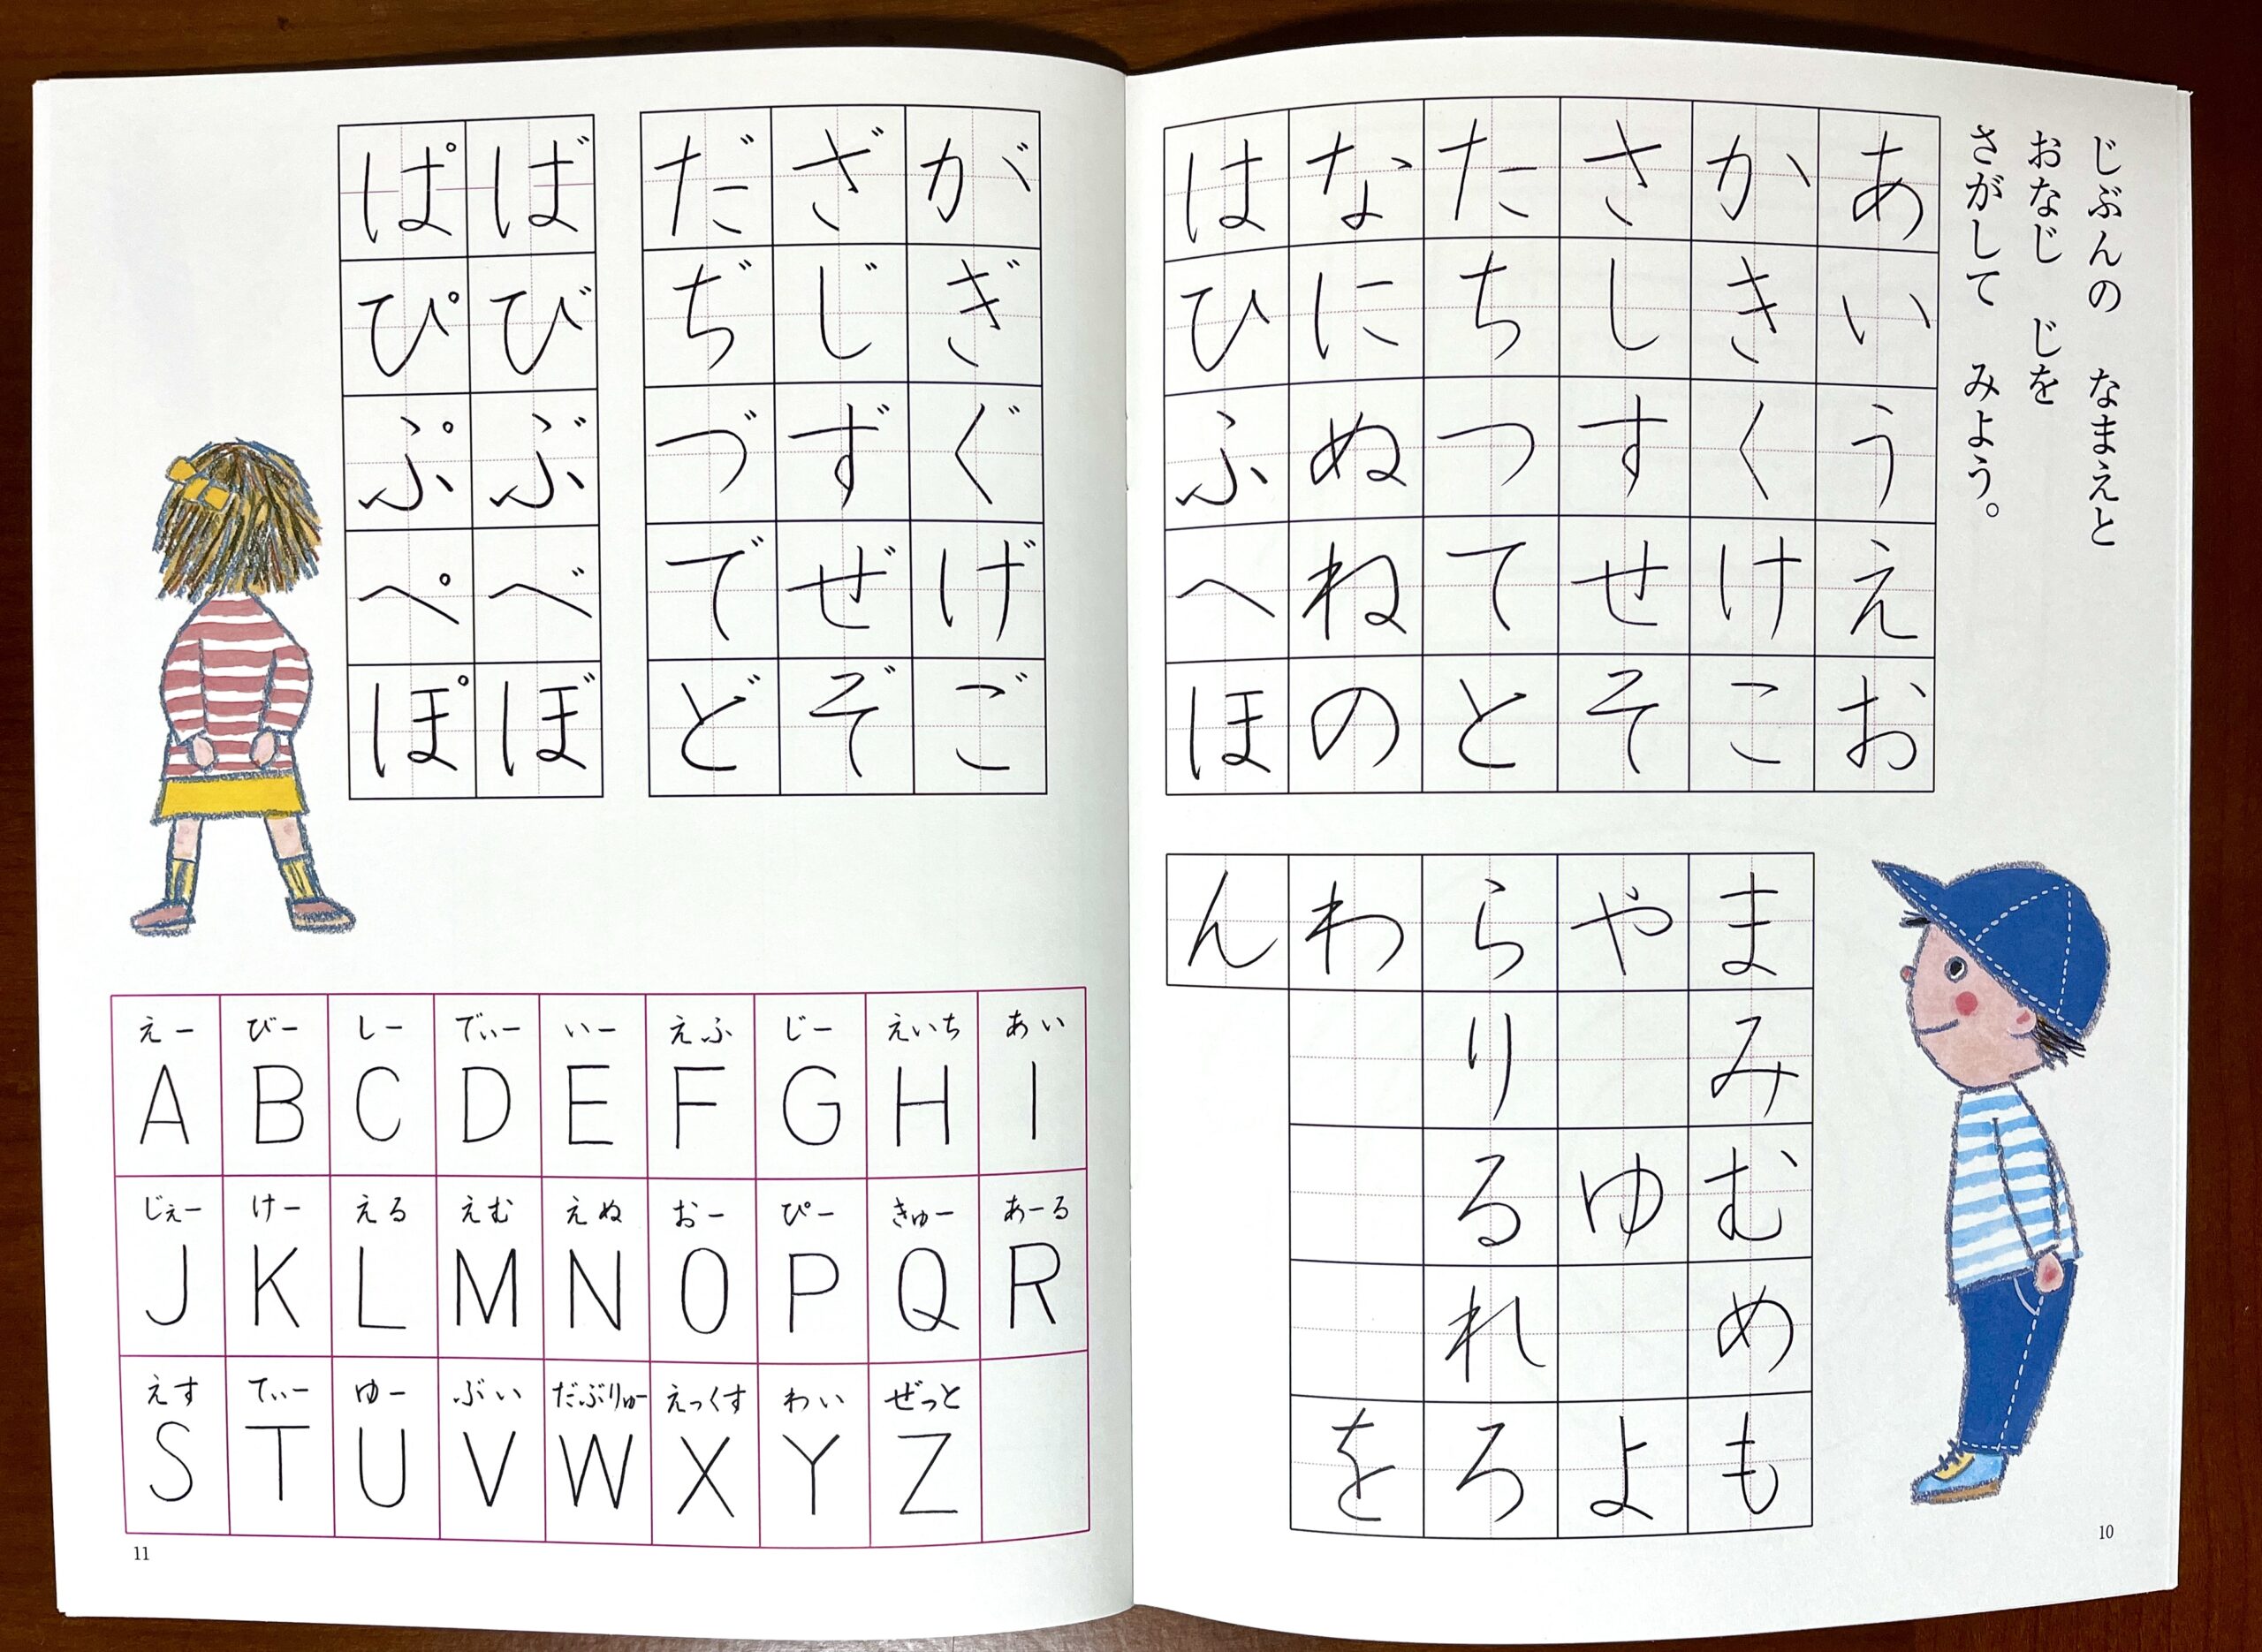 じぶんの　なまえと
おなじ　じを
さがして　みよう。
あいうえお
かきくけこ
さしすせそ
たちつてと
なにぬねの
はひふへほ
まみむめも
やゆよ
らりるれろ
わを
ん
10
がぎぐげご
ざじずぜぞ
だぢづでど
ばびぶべぼ
ぱぴぷぺぽ
えー びー しー でぃー いー えふ じー えいち あい
A B C D E F G H I
じぇー けー える えむ えぬ おー ぴー きゅー あーる
J K L M N O P Q R
えす てぃー ゆー ぶい だぶりゅー えっくす わい ぜっと
S T U V W X Y Z
11